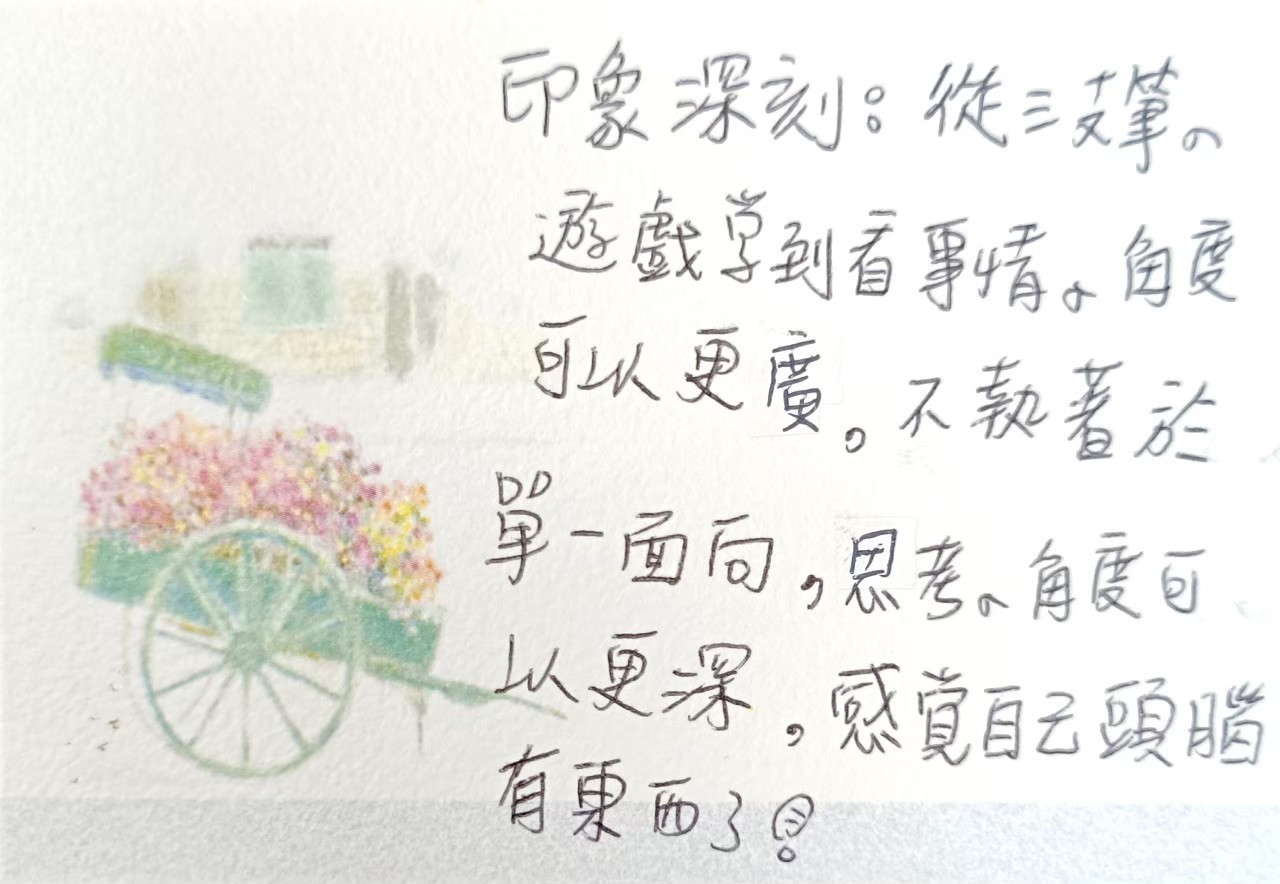 印象深刻：從三支筆の
遊戲学到看事情の角度
可以更廣。不執著於
單一面向，思考の角度可
以更深，感覚自己頭腦
有東西了！